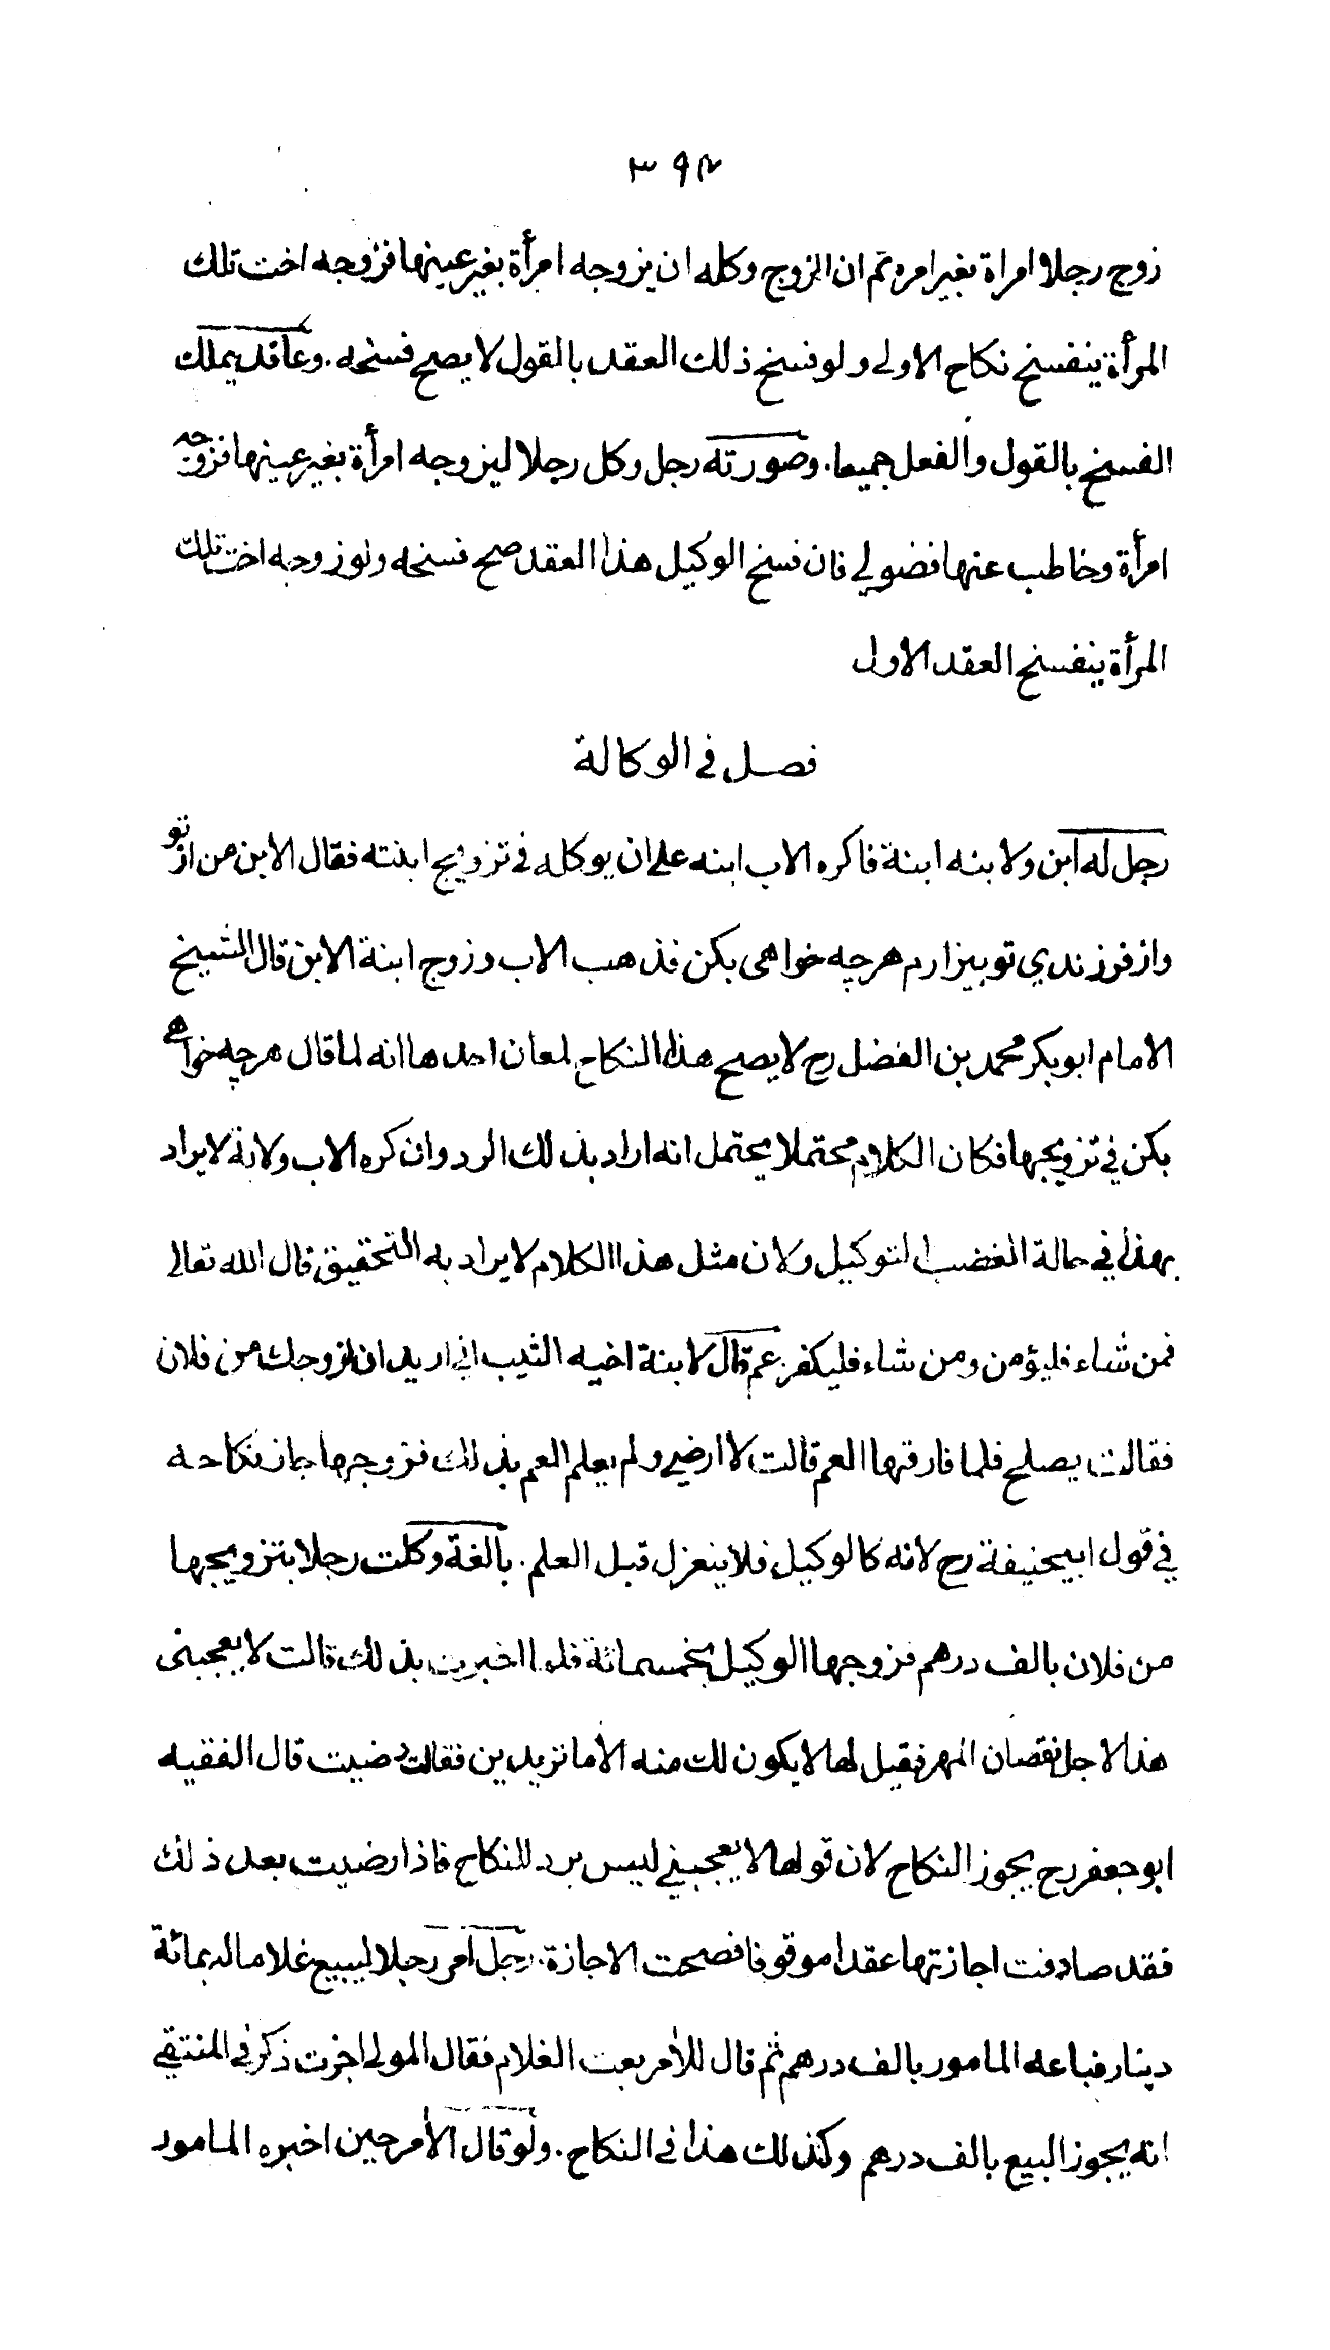 ٣٩٢
زوج رجلا امراة بغير امره ثم ان الزوج وكله ان يزوجه امرأة بغير عينها فزوجه اخت تلك
المرأة ينفسخ نكاح الاولى ولو فسخ ذلك العقد بالقول لا يصح فسخه. وعاقد يملك
الفسخ بالقول والفعل جميعا. وصورته رجل وكل رجلا ليزوجه امرأة بغير عينها فزوجه
امرأة وخاطب عنها فضولي فان فسخ الوكيل هذا العقد صح فسخه ولو زوجه اخت تلك
المرأة ينفسخ العقد الاول
فصل في الوكالة
رجل له ابن ولابنه ابنة فاكره الاب ابنه على ان يوكله في تزويج ابنته فقال الابن من از تو
واز فرزندي تو بيزارم هرچه خواهى بكن فذهب الاب وزوج ابنة الابن قال الشيخ
الامام ابو بكر محمد بن الفضل رح لا يصح هذا النكاح لمعان احدها انه لما قال هرچه خواهى
بكن في تزويجها فكان الكلام محتملا يحتمل انه اراد بذلك الرد وان كره الاب ولانه لا يراد
بهذا في حالة الغضب التوكيل ولان مثل هذا الكلام لا يراد به التحقيق قال الله تعالى
فمن شاء فليؤمن ومن شاء فليكفر. عم قال لابنة اخيه الثيب اني اريد ان ازوجك من فلان
فقالت يصلح فلما فارقها العم قالت لا ارضى ولم يعلم العم بذلك فزوجها جاز نكاحه
في قول ابيحنيفة رح لانه كالوكيل فلا ينعزل قبل العلم. بالغة وكلت رجلا بتزويجها
من فلان بالف درهم فزوجها الوكيل بخمسمائة فلما اخبرت بذلك قالت لا يعجبنى
هذا لاجل نقصان المهر فقيل لها لا يكون لك منه الا ما تريدين فقالت رضيت قال الفقيه
ابو جعفر رح يجوز النكاح لان قولها لا يعجبني ليس برد للنكاح فاذا رضيت بعد ذلك
فقد صادفت اجازتها عقدا موقوفا فصحت الاجازة. رجل امر رجلا ليبيع غلاما له بمائة
دينار فباعه المامور بالف درهم ثم قال للآمر بعت الغلام فقال المولى اجزت ذكر في المنتقى
انه يجوز البيع بالف درهم وكذلك هذا في النكاح. ولو قال الآمر حين اخبره المامور